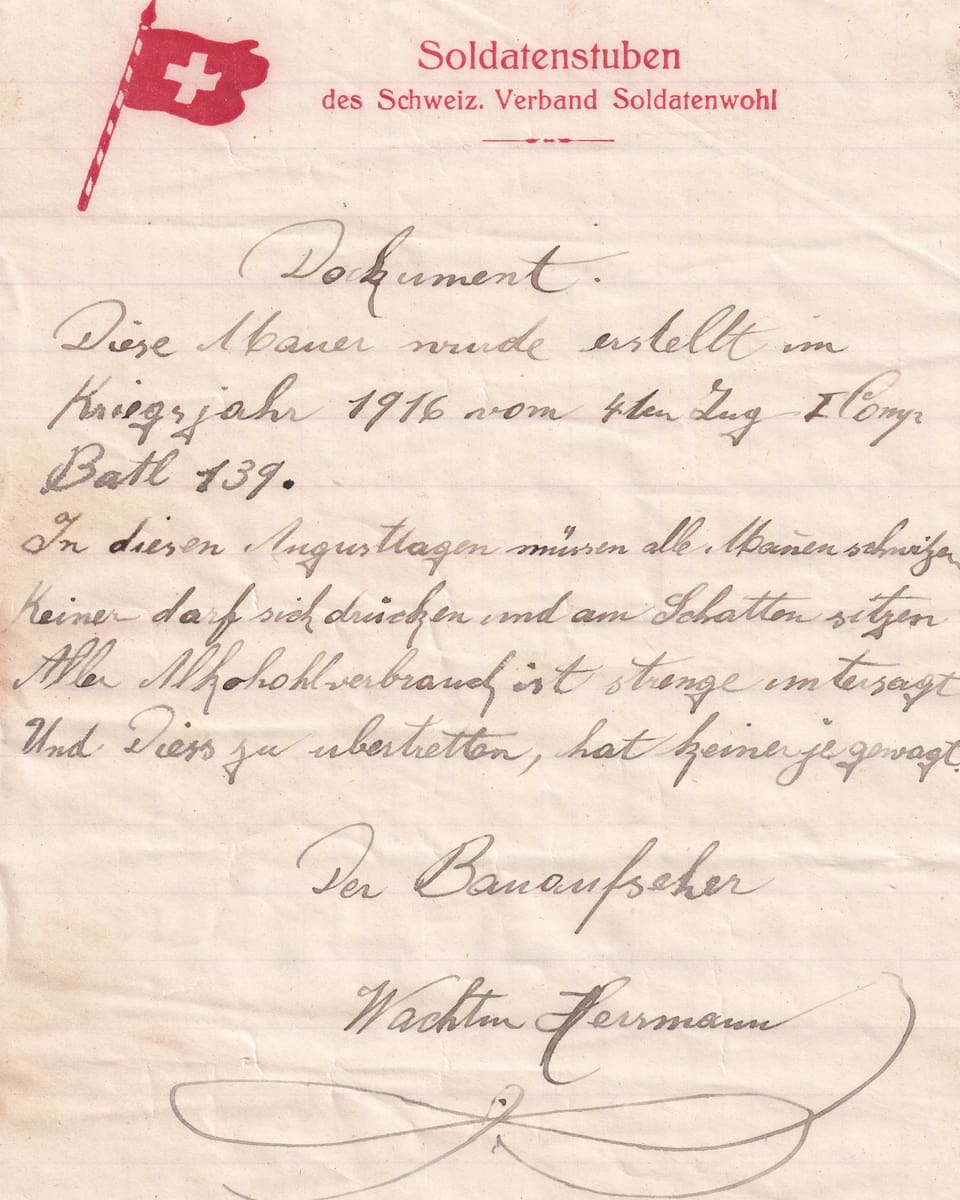 Soldatenstuben
des Schweiz. Verband Soldatenwohl
Dockument.
Diese Mauer wurde erstellt im
Kriegsjahr 1916 vom 4ten Zug I Comp
Batl 139.
In diesen Augusttagen müssen alle Mañen schwitzen
Keiner darf sich drücken und am Schatten sitzen
Aller Alkohohlverbrauch ist strenge untersagt
Und Diess zu ubertretten, hat keiner je gewagt.
Der Bauaufseher
Wachtm Herrmann